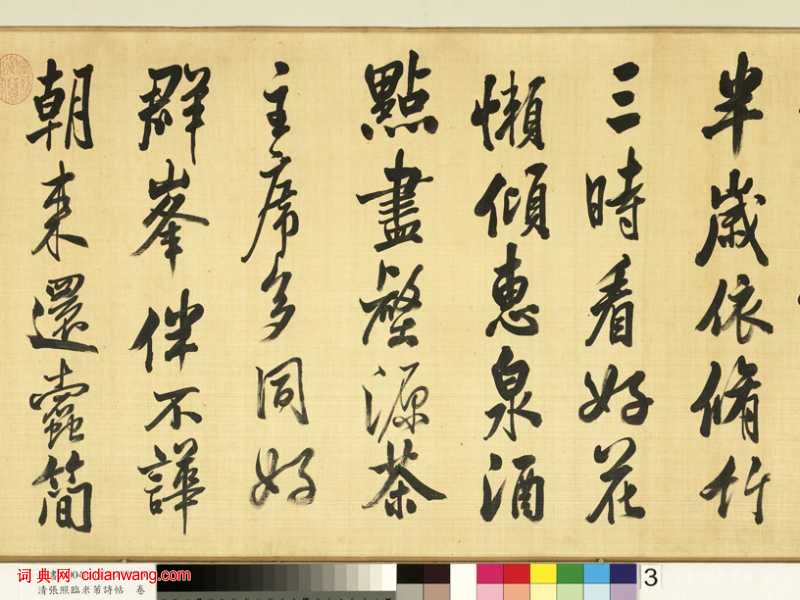 半歲依脩竹
三時看好花
懶傾惠泉酒
點盡壑源茶
主席多同好
群峯伴不譁
朝來還蠹簡
3
词典网·cidianwang.com
清張照臨米芾詩帖 卷